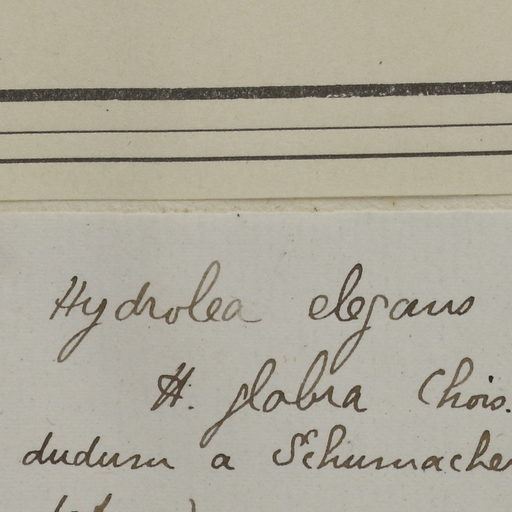 Hydrolea elegans
H. glabra Chois.
a Schumacher